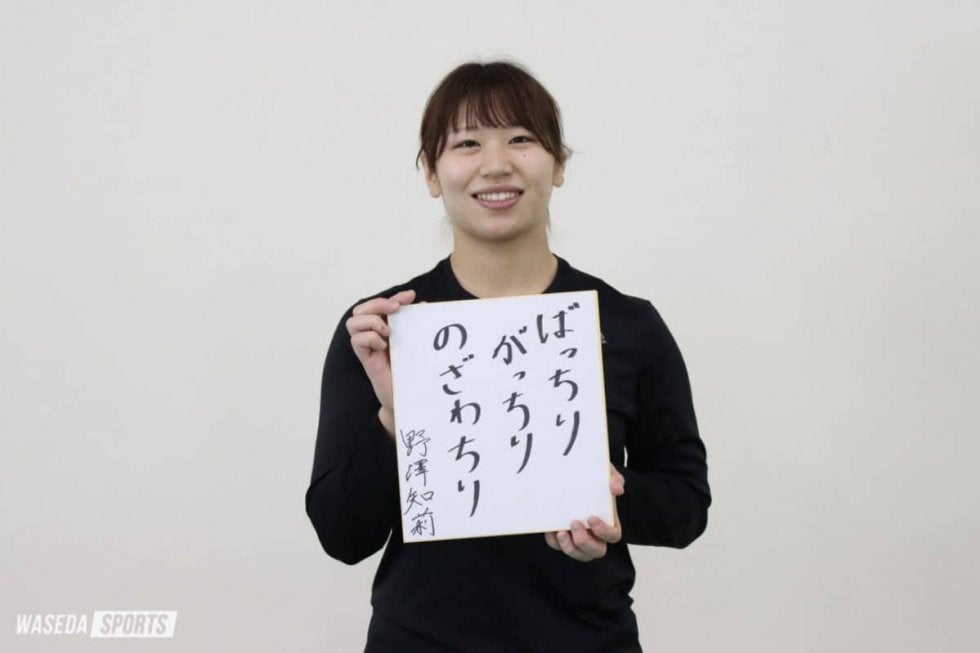 ばっちり
がっちり
のざわちり
野澤知莉
WASEDA SPORTS